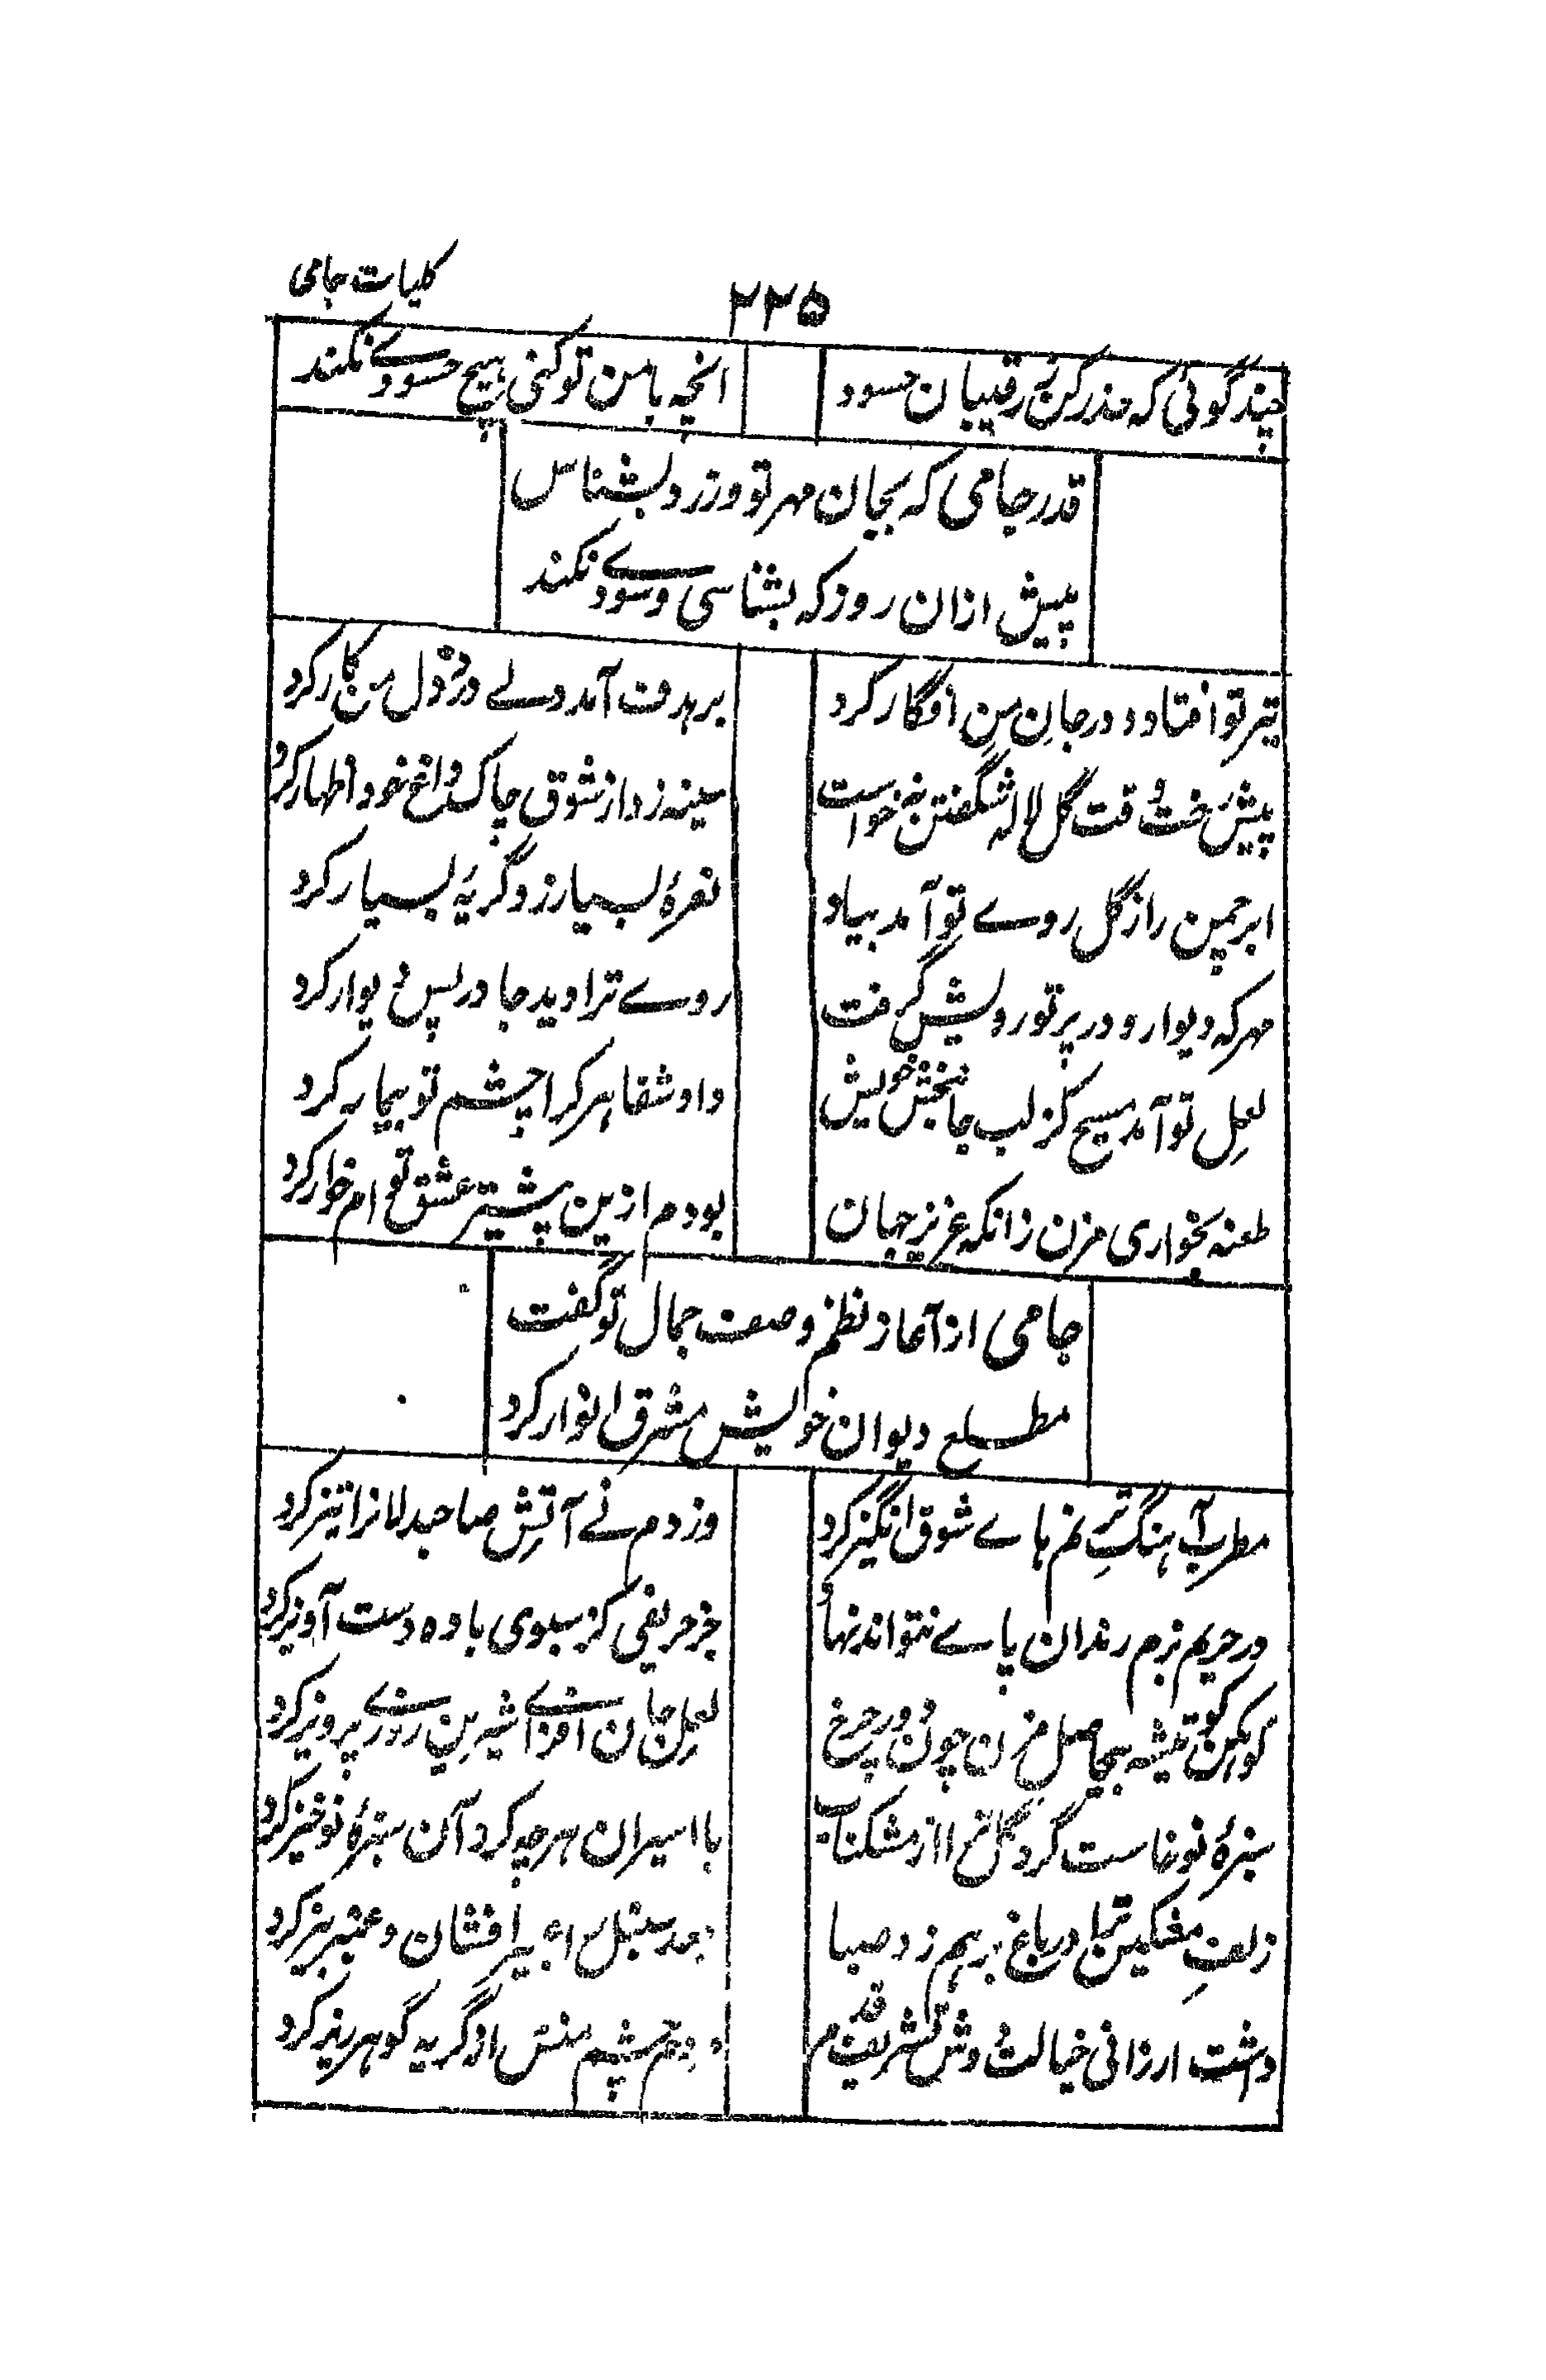 کلیات جامی
۲۲۵
چند گوئی که حذر کن ز رقیبان حسود
انچه با من تو کنی هیچ حسودے نکند
قدر جامی که بجان مهر تو ورزد بشناس
پیش ازان روز که بشناسی و سودے نکند
تیر تو افتاد و در جانِ منِ افگار کرد
بر هدف آمد ولے در دل من کار کرد
پیش رخت وقت گل لاله شگفتن نه خواست
سینه زد از شوق چاک داغ خود اظهار کرد
ابر چمن را ز گل روے تو آمد بیاد
نعرهٔ بسیار زد و گریهٔ بسیار کرد
مهر که دیوار و در پرتو رویش گرفت
روے ترا دید جا در پس دیوار کرد
لعلِ تو آمد مسیح کز لب جانبخش خویش
داد شفا هر کرا چشم تو بیمار کرد
طعنه بخواری مزن زانکه عزیز جهان
بودم ازین پیشتر عشق تو ام خوار کرد
جامی از آغاز نظم وصف جمال تو گفت
مطلع دیوان خویش مشرق انوار کرد
مطرب آهنگِ ترنم هاے شوق انگیز کرد
وز دم نے آتشِ صاحبدلانرا تیز کرد
در حریم بزم رندان پاے نتواند نهاد
جز حریفی کز سبوی باده دست آویز کرد
کوهکن گو تیشه بیحاصل مزن چون دور چرخ
لعلِ جان افزاے شیرین روزے پرویز کرد
سبزهٔ نو خاست گرد گلش از مشکناب
با اسیران هرچه کرد آن سبزهٔ نوخیز کرد
زلفِ مشکین ترا در باغ برهم زد صبا
جعد سنبل را عبیر افشان و عنبر بیز کرد
داشت ارزانی خیالت دوش تشریف قدم
چشم منش از گریه گوهر ریز کرد